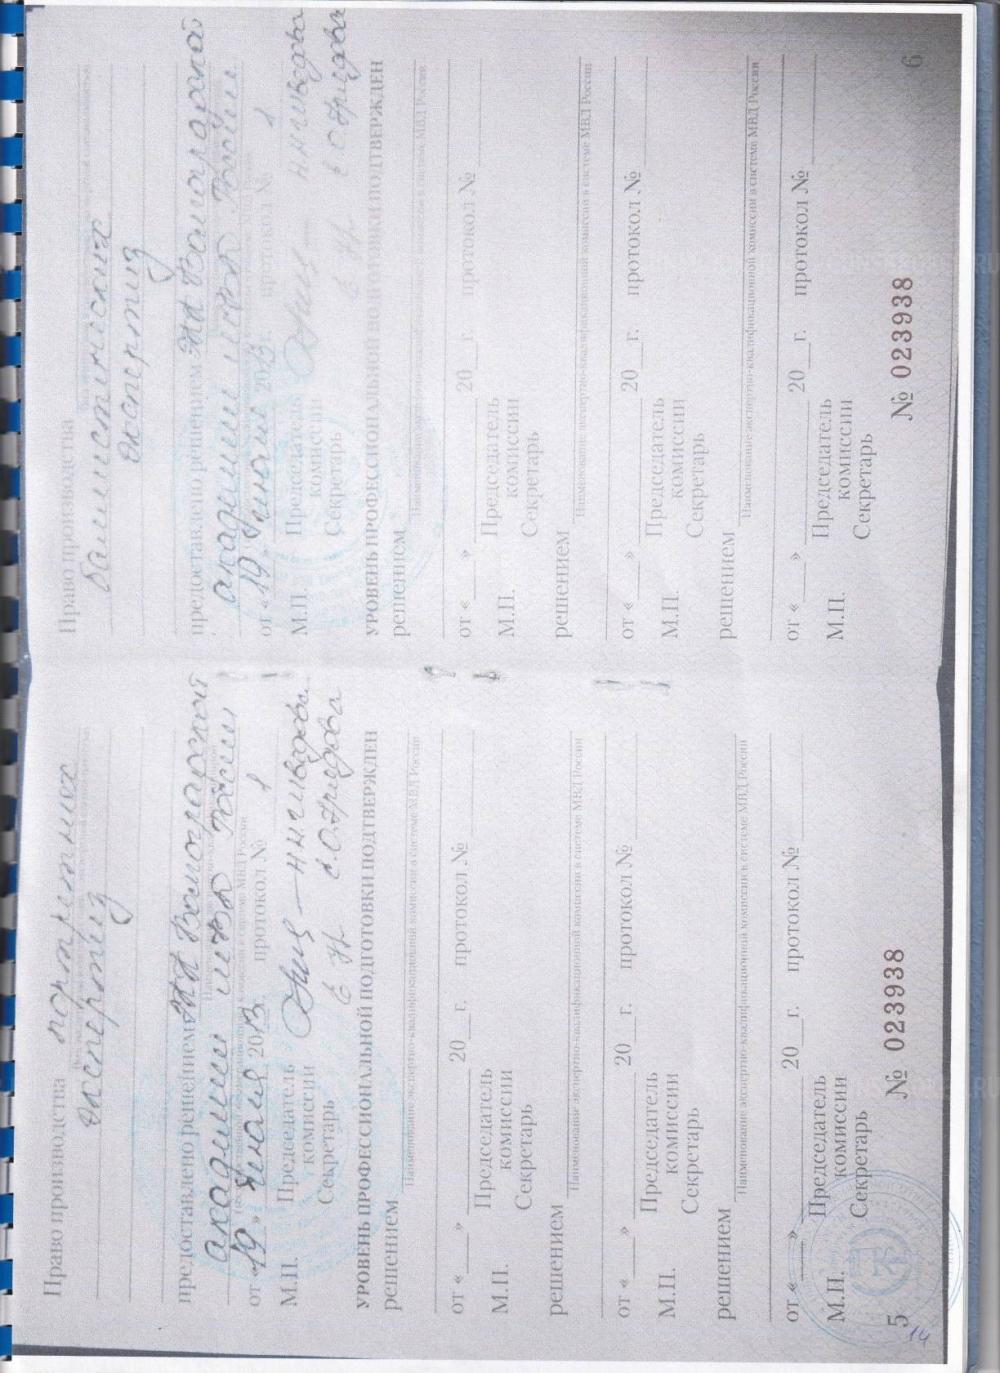 Право производства портретных
экспертиз
предоставлено решением ЭКК Волгоградской
академии МВД России
от «19» июля 2013 г. протокол № 1
М.П. Председатель
комиссии
Секретарь
УРОВЕНЬ ПРОФЕССИОНАЛЬНОЙ ПОДГОТОВКИ ПОДТВЕРЖДЕН
решением
Наименование экспертно-квалификационной комиссии в системе МВД России
от «___» 20__г. протокол №
М.П. Председатель
комиссии
Секретарь
решением
Наименование экспертно-квалификационной комиссии в системе МВД России
от «___» 20__г. протокол №
М.П. Председатель
комиссии
Секретарь
решением
Наименование экспертно-квалификационной комиссии в системе МВД России
от «___» 20__г. протокол №
М.П. Председатель
комиссии
Секретарь
5 № 023938
14
Право производства
баллистических
экспертиз
предоставлено решением ЭКК Волгоградской
академии МВД России
от «19» июля 2013 г. протокол № 1
М.П. Председатель
комиссии
Секретарь
УРОВЕНЬ ПРОФЕССИОНАЛЬНОЙ ПОДГОТОВКИ ПОДТВЕРЖДЕН
решением
Наименование экспертно-квалификационной комиссии в системе МВД России
от «___» 20__г. протокол №
М.П. Председатель
комиссии
Секретарь
решением
Наименование экспертно-квалификационной комиссии в системе МВД России
от «___» 20__г. протокол №
М.П. Председатель
комиссии
Секретарь
решением
Наименование экспертно-квалификационной комиссии в системе МВД России
от «___» 20__г. протокол №
М.П. Председатель
комиссии
Секретарь
№ 023938 6